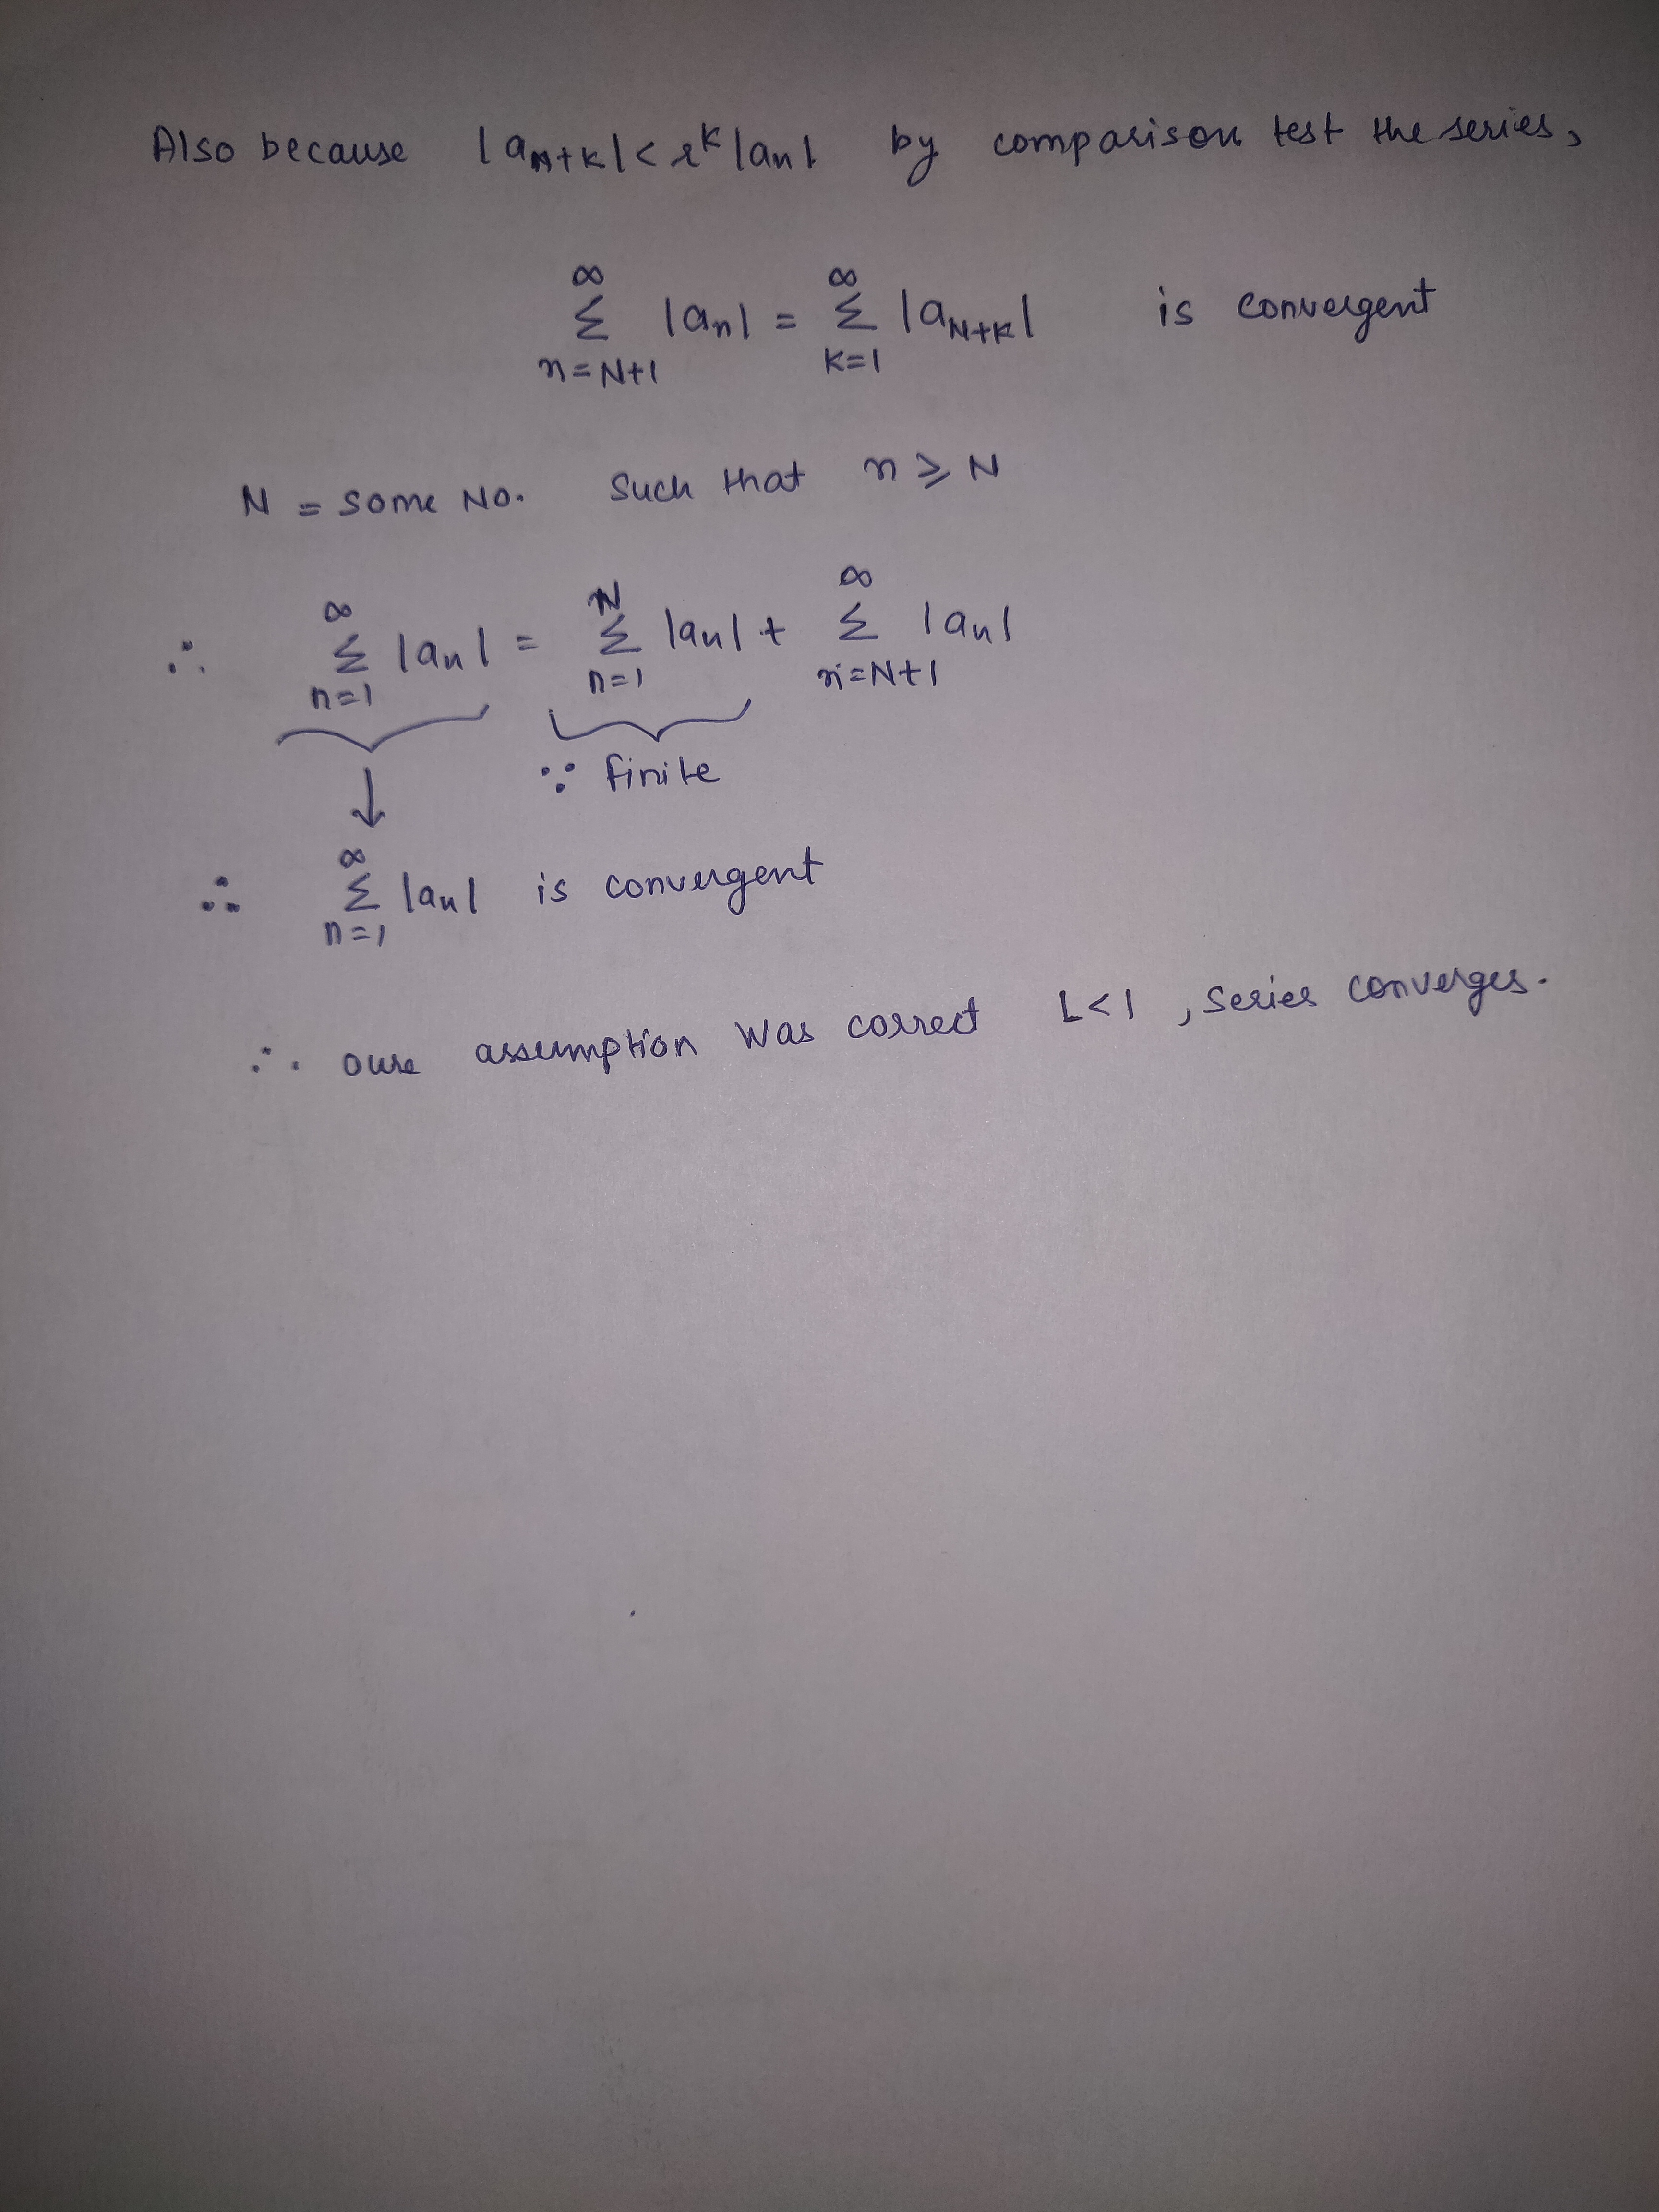 Also because |a_{N+K}| < r^K |a_n| by comparison test the series,
∞ ∑ n=N+1 |a_n| = ∞ ∑ K=1 |a_{N+K}| is convergent
N = some No. such that n ≥ N
∴ ∞ ∑ n=1 |a_n| = N ∑ n=1 |a_n| + ∞ ∑ n=N+1 |a_n|
∵ finite
↓
∴ ∞ ∑ n=1 |a_n| is convergent
∴ oure assumption Was correct L<1, Series converges.